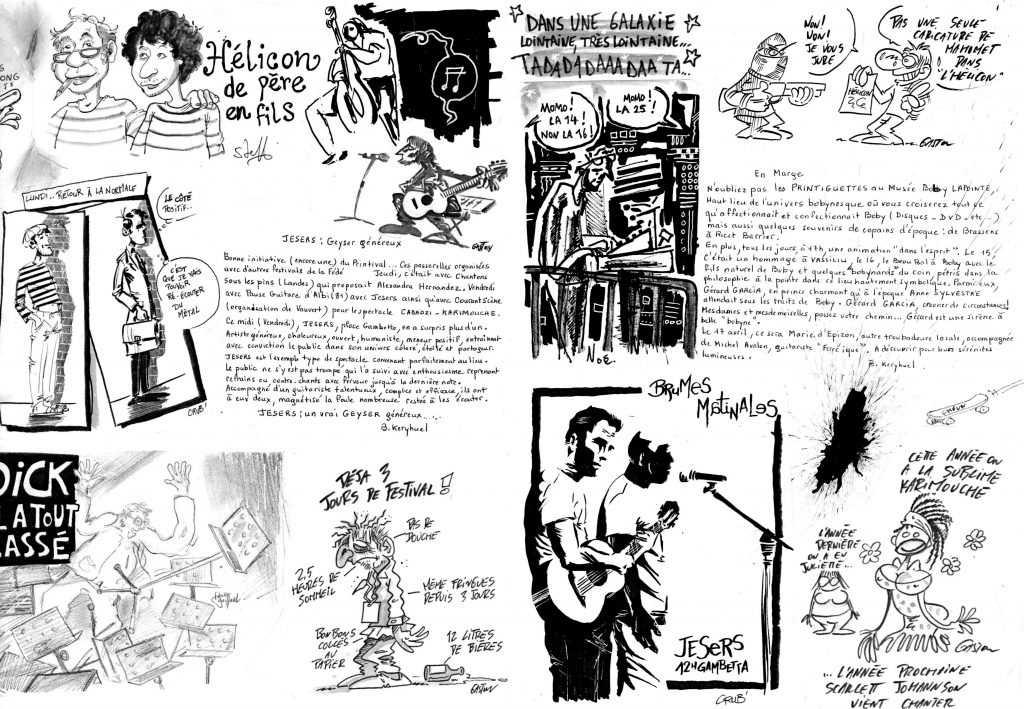 Hélicon
de père
en fils
LUNDI... RETOUR À LA NORMALE
LE CÔTÉ
POSITIF...
C'EST
QUE JE VAIS
POUVOIR
RÉ-ÉCOUTER
DU
MÉTAL
CRUB'
GASTON
JESERS : Geyser généreux
Bonne initiative (encore une) du Printival... Ces passerelles organisées
avec d'autres festivals de la Fédé Jeudi, c'était avec Chantons
sous les pins (Landes) qui proposait Alexandra Hernandez, Vendredi
avec Pause Guitare d'Albi (81) avec Jesers ainsi qu'avec Courant Scène
(organisation de Vauvert) pour le spectacle CABADZI - KARIMOUCHE.
Ce midi (Vendredi), JESERS, place Gambetta, en a surpris plus d'un.
Artiste généreux, chaleureux, ouvert, humaniste, meneur positif, entraînant
avec conviction le public dans son univers coloré, étoilé et partageur.
JESERS est l'exemple type de spectacle convenant parfaitement au lieu.
Le public ne s'y est pas trompé qui l'a suivi avec enthousiasme reprenant
refrains ou contre-chants avec ferveur jusqu'à la dernière note.
Accompagné d'un guitariste talentueux, complice et efficace, ils ont
à eux deux, magnétisé la foule nombreuse restée à les écouter.
JESERS : un vrai GEYSER généreux....
B. Keryhuel
DICK
L A TOUT
CASSÉ
DÉJA 3
JOURS DE FESTIVAL !
PAS DE
DOUCHE
2,5
HEURES DE
SOMMEIL
MÊME FRINGUES
DEPUIS 3 JOURS
BONBONS
COLLÉS
AU
PAPIER
12 LITRES
DE BIÈRES
GASTON
DANS UNE GALAXIE
LOINTAINE, TRÈS LOINTAINE...
TADADADAAADAATA...
MOMO !
LA 14 !
NON LA 16 !
MOMO !
LA 25 !
NOÉ
NON !
NON !
JE VOUS
JURE
PAS UNE SEULE
CARICATURE
DE MAHOMET
DANS
"L'HÉLICON"
HÉLICON
2€
GASTON
En Marge
N'oubliez pas les PRINTIGUETTES au Musée Boby LAPOINTE,
Haut lieu de l'univers bobynesque où vous croiserez tout ce
qu'affectionnait et confectionnait Boby (Disques - DVD - etc...)
mais aussi quelques souvenirs de copains d'époque : de Brassens
à Ricet Barrier.
En plus, tous les jours à 17h une animation "dans l'esprit". Le 15,
c'était un hommage à VASSILIU, le 16, le Beau Bal à Boby avec le
Fils naturel de Boby et quelques bobynards du coin pétris dans la
philosophie à la pointe dans ce lieu hautement symbolique. Parmi eux,
Gérard GARCIA, en prince charmant qu'à l'époque Anne SYLVESTRE
attendait sous les traits de Boby. Gérard GARCIA, encore de circonstances !
Mesdames et mesdemoiselles, passez votre chemin... Gérard est une sirène à
belle "bobyne".
Le 17 avril, ce sera Marie d'Epizon, autre troubadoure locale, accompagnée
de Michel Avalon, guitariste "Ferré ique". A découvrir pour leurs sérénités
lumineuses.
B. Keryhuel
BRUMES
MATINALES
JESERS
12H GAMBETTA
CRUB'
CETTE ANNÉE ON
A LA SUBLIME
KARIMOUCHE
L'ANNÉE
DERNIÈRE
ON A EU
JULIETTE...
GASTON
... L'ANNÉE PROCHAINE
SCARLETT JOHANNSON
VIENT CHANTER